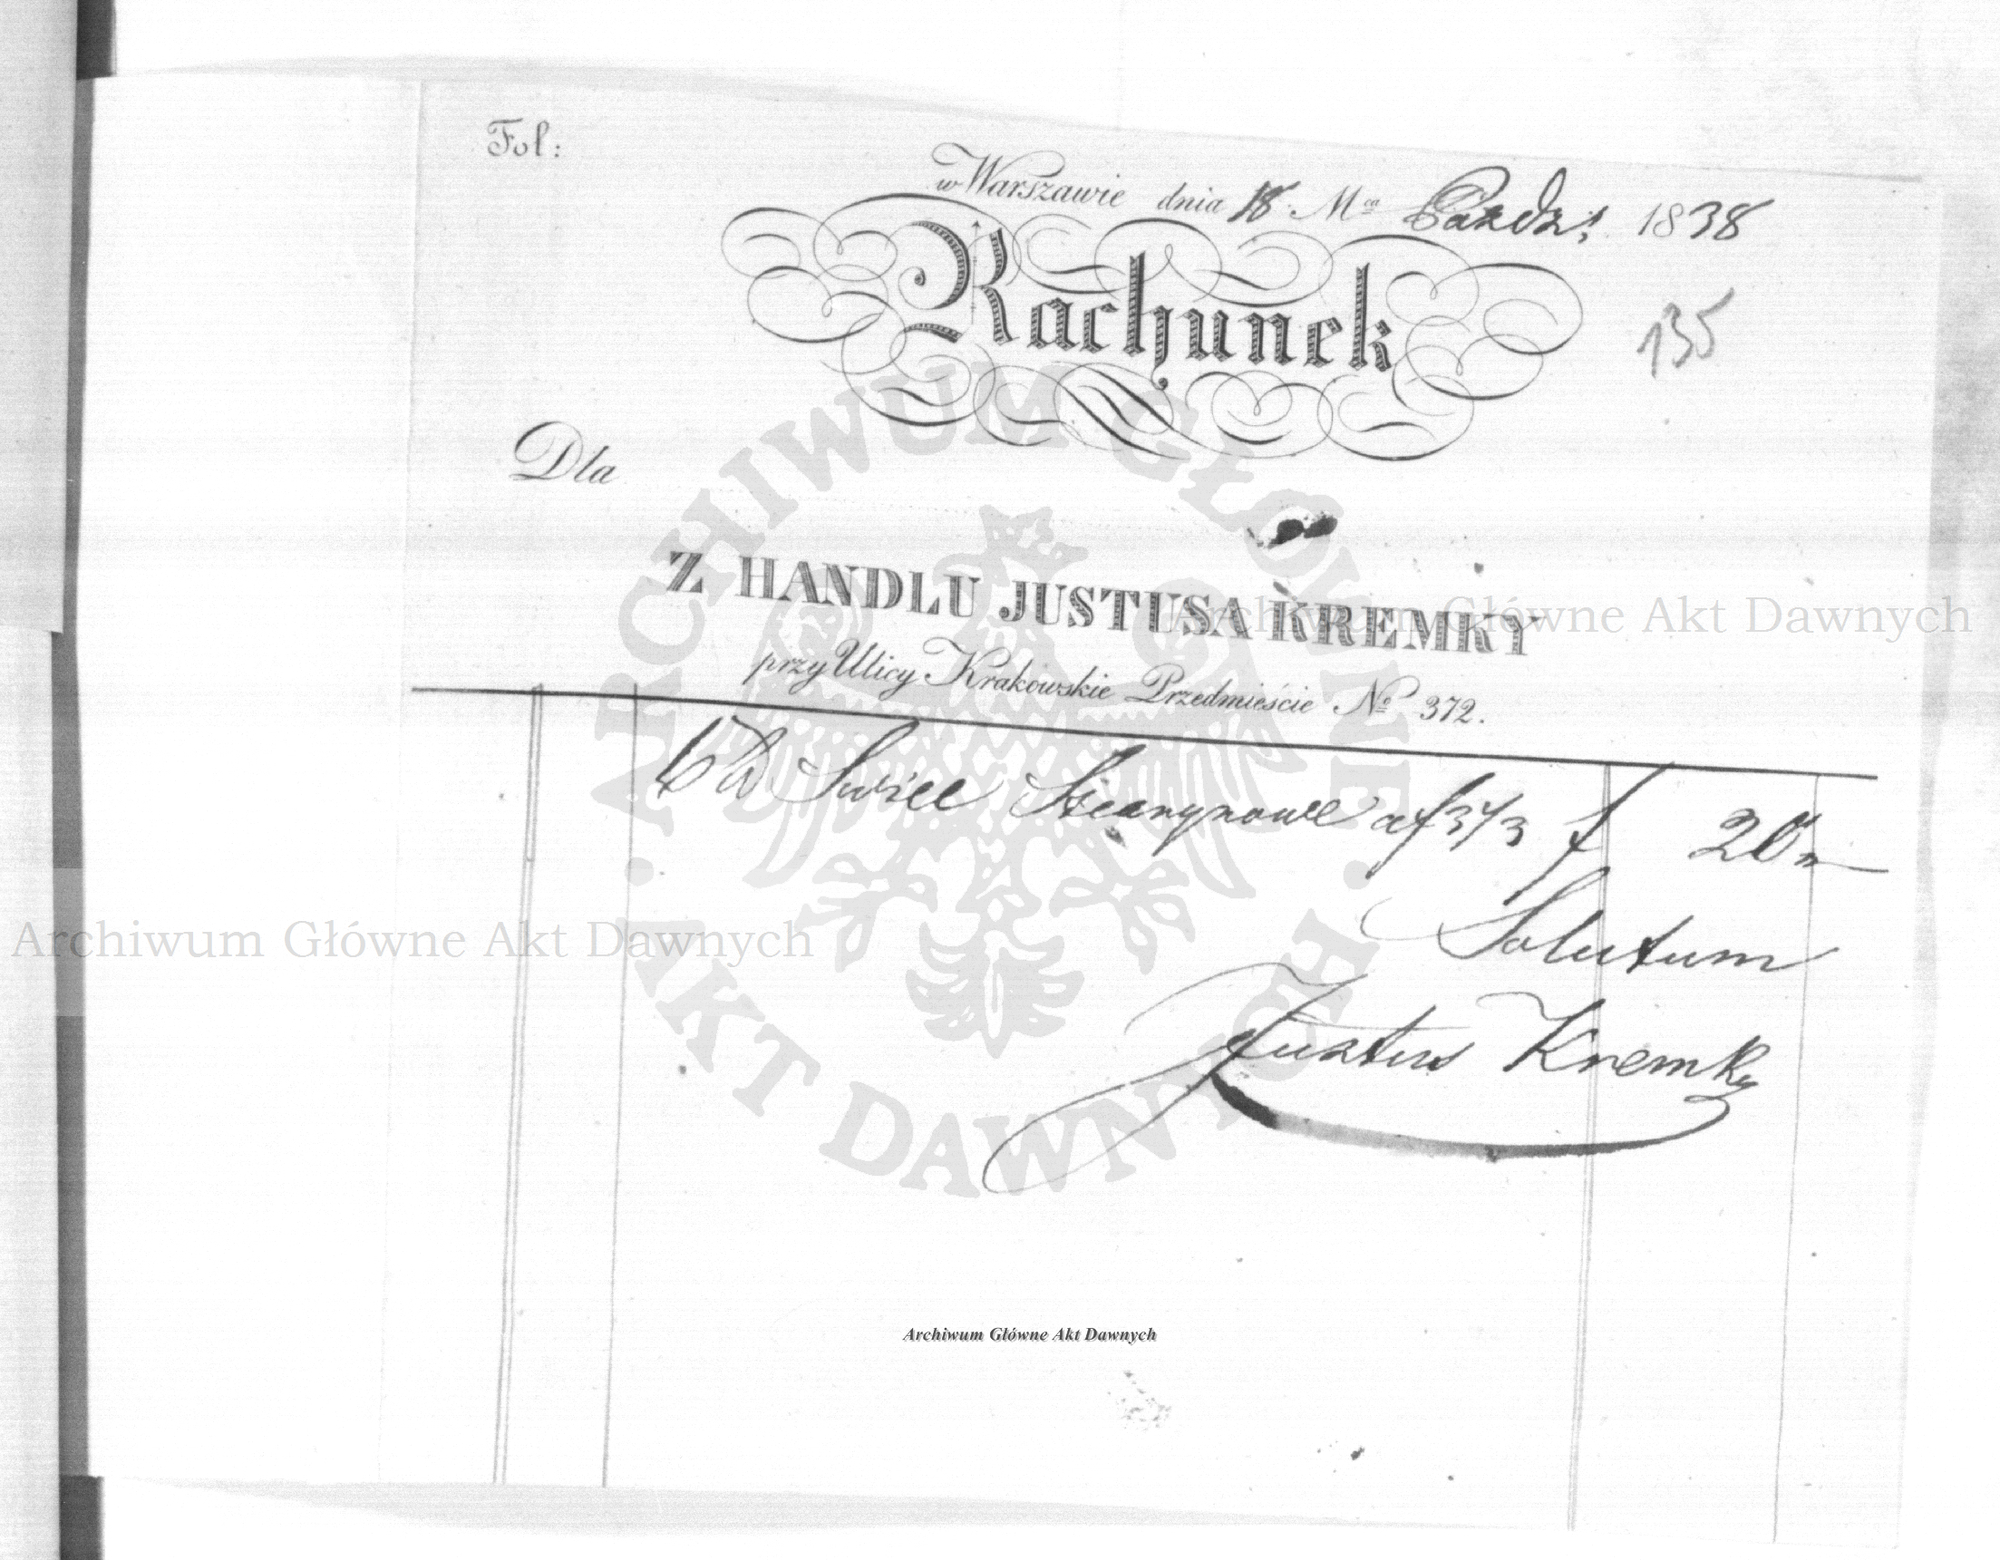 Fol:
w Warszawie dnia 18 Mca Pazdz: 1838
Rachunek
135
Dla
Z HANDLU JUSTUSA KREMKY
przy Ulicy Krakowskie Przedmieście No 372.
6 Swiec Stearynowe af 3 1/3 f 20
Solutum
Justus Kremky
ARCHIWUM GŁÓWNE
AKT DAWNYCH
Archiwum Główne Akt Dawnych
Archiwum Główne Akt Dawnych
Archiwum Główne Akt Dawnych